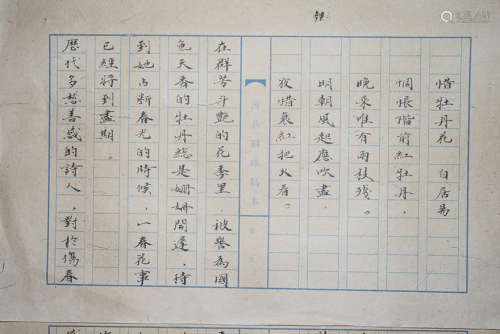 惜牡丹花 白居易
惆悵階前紅牡丹，
晚來唯有兩枝殘。
明朝風起應吹盡，
夜惜衰紅把火看。
在群芳斗艷的花季里，被譽為國
色天香的牡丹總是姍姍開遲，待
到她占斷春光的時候，一春花事
已經將到盡期。
歷代多愁善感的詩人，對於傷春